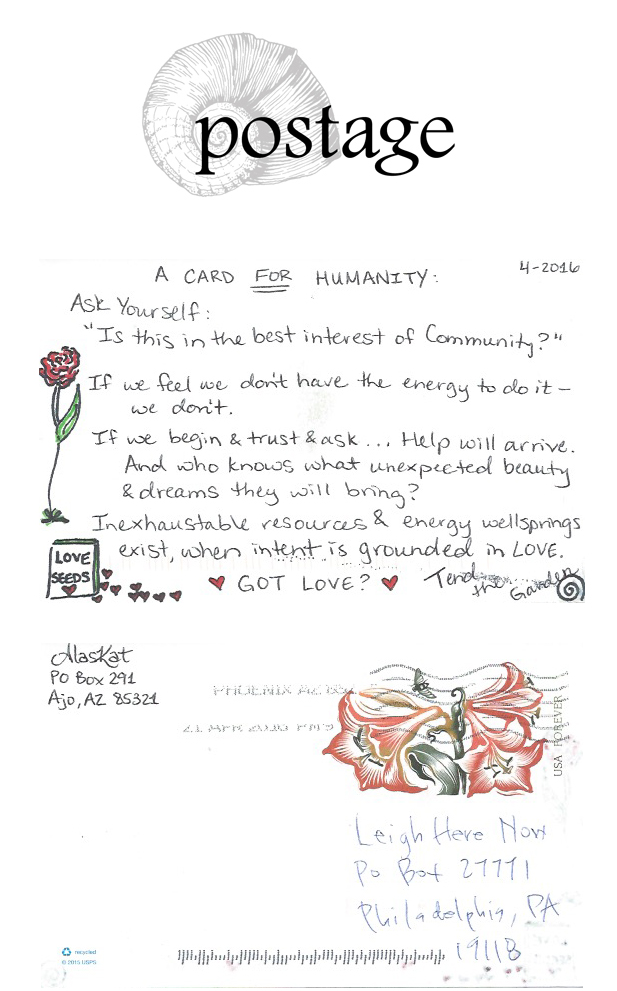 postage
A CARD FOR HUMANITY:
4-2016
Ask Yourself:
"Is this in the best interest of Community?"
If we feel we don't have the energy to do it –
we don't.
If we begin & trust & ask ... Help will arrive.
And who knows what unexpected beauty
& dreams they will bring?
Inexhaustable resources & energy wellsprings
exist, when intent is grounded in LOVE.
LOVE
SEEDS
♥ GOT LOVE? ♥
Tend
the
Garden
AlasKat
PO Box 291
Ajo, AZ 85321
PHOENIX AZ
21 APR 2016 PM 9
USA FOREVER
Leigh Here Now
Po Box 27771
Philadelphia, PA
19118
recycled
© 2015 USPS